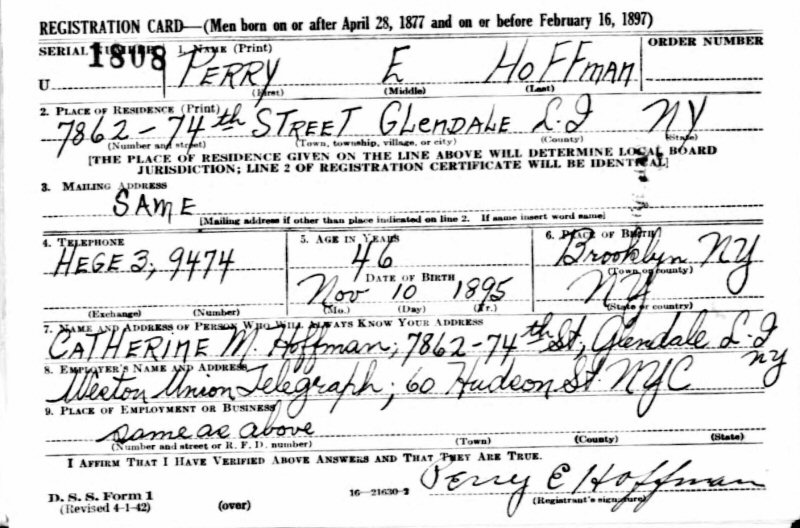 REGISTRATION CARD—(Men born on or after April 28, 1877 and on or before February 16, 1897)
SERIAL NUMBER 1. NAME (Print) ORDER NUMBER
1808
U PERRY E HOFFMAN
(First) (Middle) (Last)
2. PLACE OF RESIDENCE (Print)
7862-74th STREET GLENDALE L.I NY
(Number and street) (Town, township, village, or city) (County) (State)
[THE PLACE OF RESIDENCE GIVEN ON THE LINE ABOVE WILL DETERMINE LOCAL BOARD
JURISDICTION; LINE 2 OF REGISTRATION CERTIFICATE WILL BE IDENTICAL]
3. MAILING ADDRESS
SAME
[Mailing address if other than place indicated on line 2. If same insert word same]
4. TELEPHONE 5. AGE IN YEARS 6. PLACE OF BIRTH
HEGE 3; 9474 46 Brooklyn NY
DATE OF BIRTH (Town or county)
Nov 10 1895 NY
(Exchange) (Number) (Mo.) (Day) (Yr.) (State or country)
7. NAME AND ADDRESS OF PERSON WHO WILL ALWAYS KNOW YOUR ADDRESS
CATHERINE M. Hoffman; 7862-74th St, Glendale L.I NY
8. EMPLOYER'S NAME AND ADDRESS
Weston Union Telegraph; 60 Hudson St. NYC
9. PLACE OF EMPLOYMENT OR BUSINESS
same as above
(Number and street or R. F. D. number) (Town) (County) (State)
I AFFIRM THAT I HAVE VERIFIED ABOVE ANSWERS AND THAT THEY ARE TRUE.
Perry E Hoffman
D. S. S. Form 1 16—21630-2 (Registrant's signature)
(Revised 4-1-42) (over)